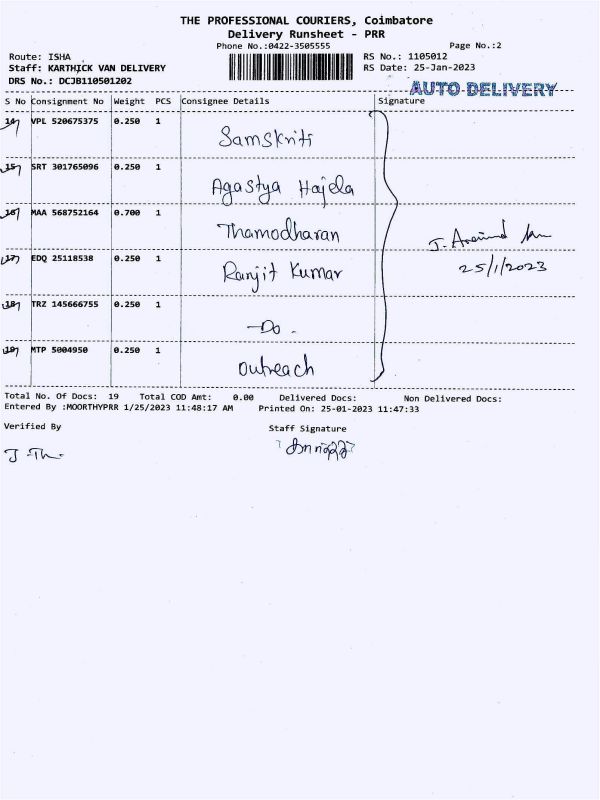 THE PROFESSIONAL COURIERS, Coimbatore
Delivery Runsheet - PRR
Phone No.:0422-3505555 Page No.:2
Route: ISHA RS No.: 1105012
Staff: KARTHICK VAN DELIVERY RS Date: 25-Jan-2023
DRS No.: DCJB110501202
AUTO DELIVERY
S No Consignment No Weight PCS Consignee Details Signature
14 VPL 520675375 0.250 1
Samskriti
15 SRT 301765096 0.250 1
Agastya Hajela
16 MAA 568752164 0.700 1
Thamodharan
J. Aravind
17 EDQ 25118538 0.250 1
Ranjit Kumar
25/1/2023
18 TRZ 145666755 0.250 1
-Do -
19 MTP 5004950 0.250 1
Outreach
Total No. Of Docs: 19 Total COD Amt: 0.00 Delivered Docs: Non Delivered Docs:
Entered By :MOORTHYPRR 1/25/2023 11:48:17 AM Printed On: 25-01-2023 11:47:33
Verified By Staff Signature